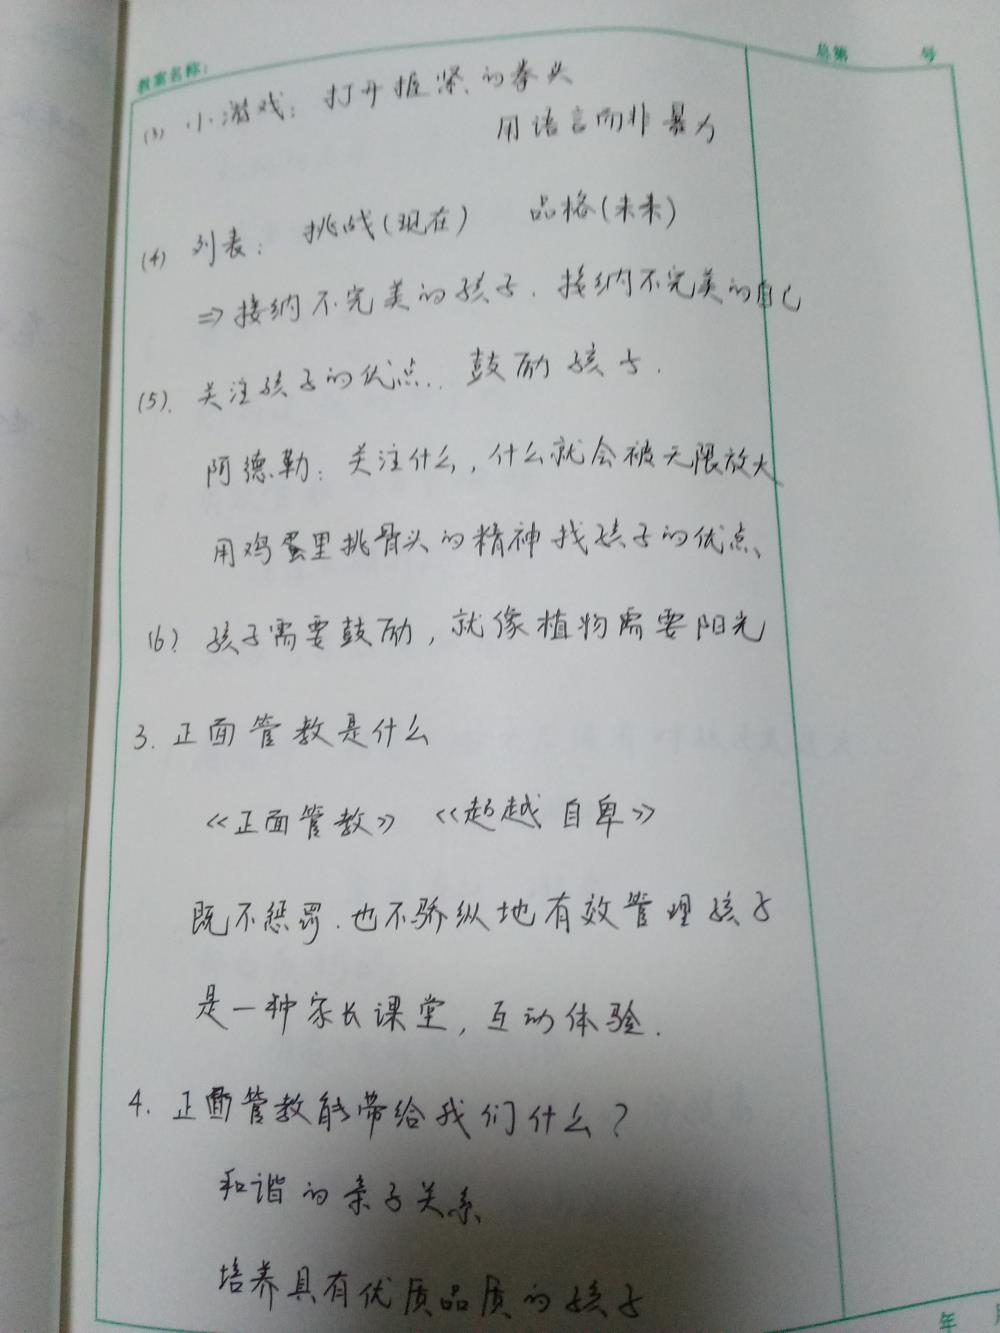 教案名称：
总第 号
(3) 小游戏：打开握紧的拳头
用语言而非暴力
(4) 列表： 挑战(现在) 品格(未来)
⇒接纳不完美的孩子．接纳不完美的自己
(5). 关注孩子的优点．鼓励孩子．
阿德勒：关注什么，什么就会被无限放大
用鸡蛋里挑骨头的精神找孩子的优点、
(6) 孩子需要鼓励，就像植物需要阳光
3. 正面管教是什么
《正面管教》 《超越自卑》
既不惩罚．也不骄纵地有效管理孩子
是一种家长课堂，互动体验．
4. 正面管教能带给我们什么？
和谐的亲子关系
培养具有优质品质的孩子
年